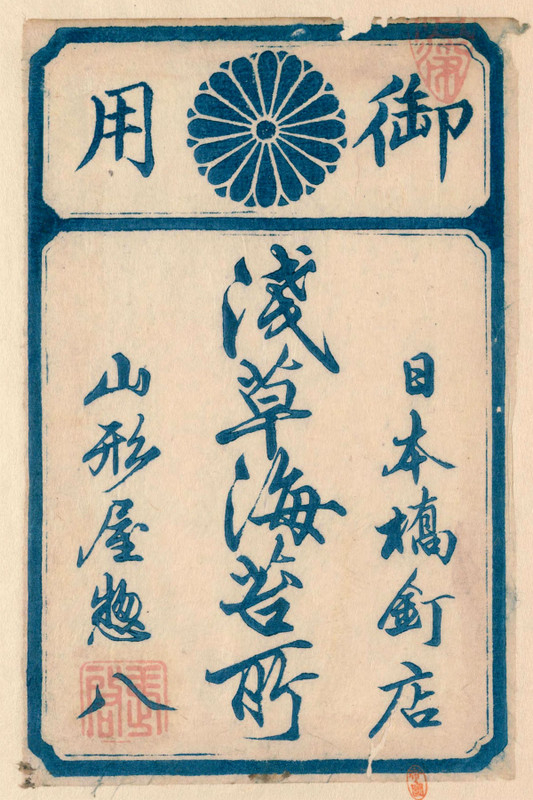 御用
日本橋釘店
淺草海苔所
山形屋惣八